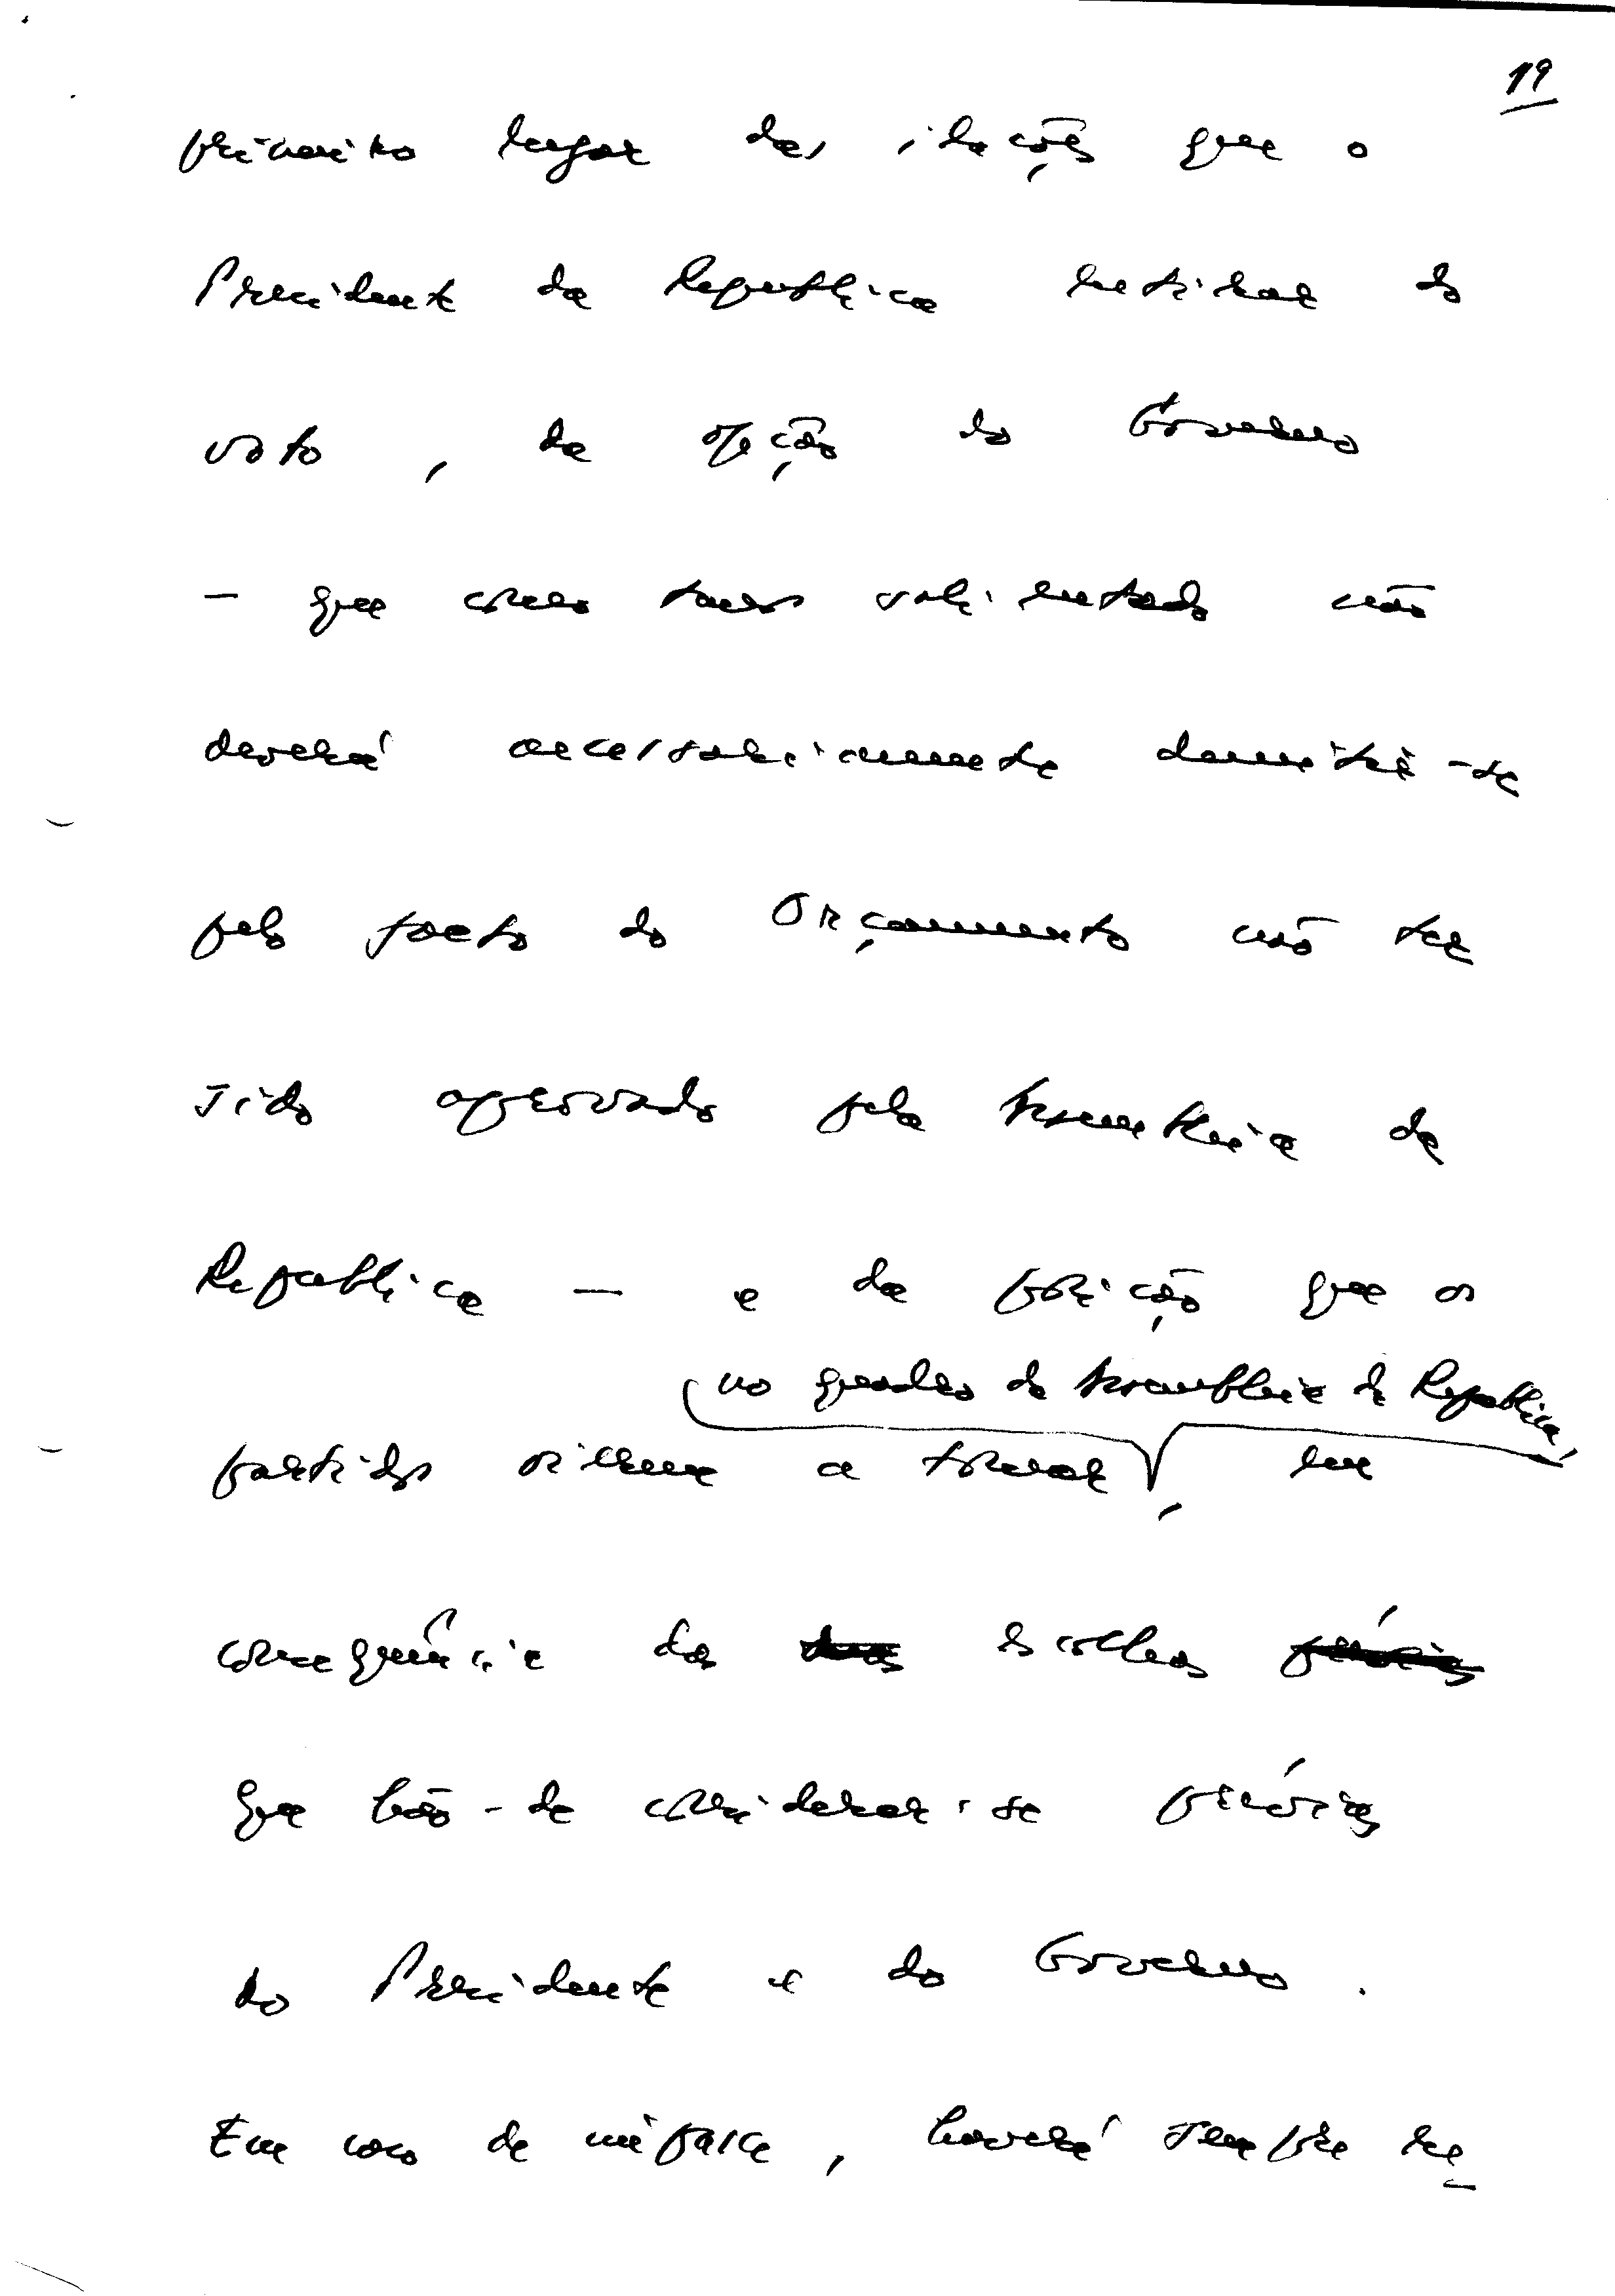 19
primeiro lugar das ilações que o
Presidente da República retirar do
voto, da opção do Governo
— que como tenho salientado não
deverá necessariamente demitir-se
pelo facto do Orçamento não ter
sido aprovado pela Assembleia da
República — e da posição que os
no quadro da Assembleia da República,
partidos vierem a tomar, em
consequência das escolhas
que hão-de considerar-se prévias
do Presidente e do Governo.
Em caso de impasse, haverá sempre re-